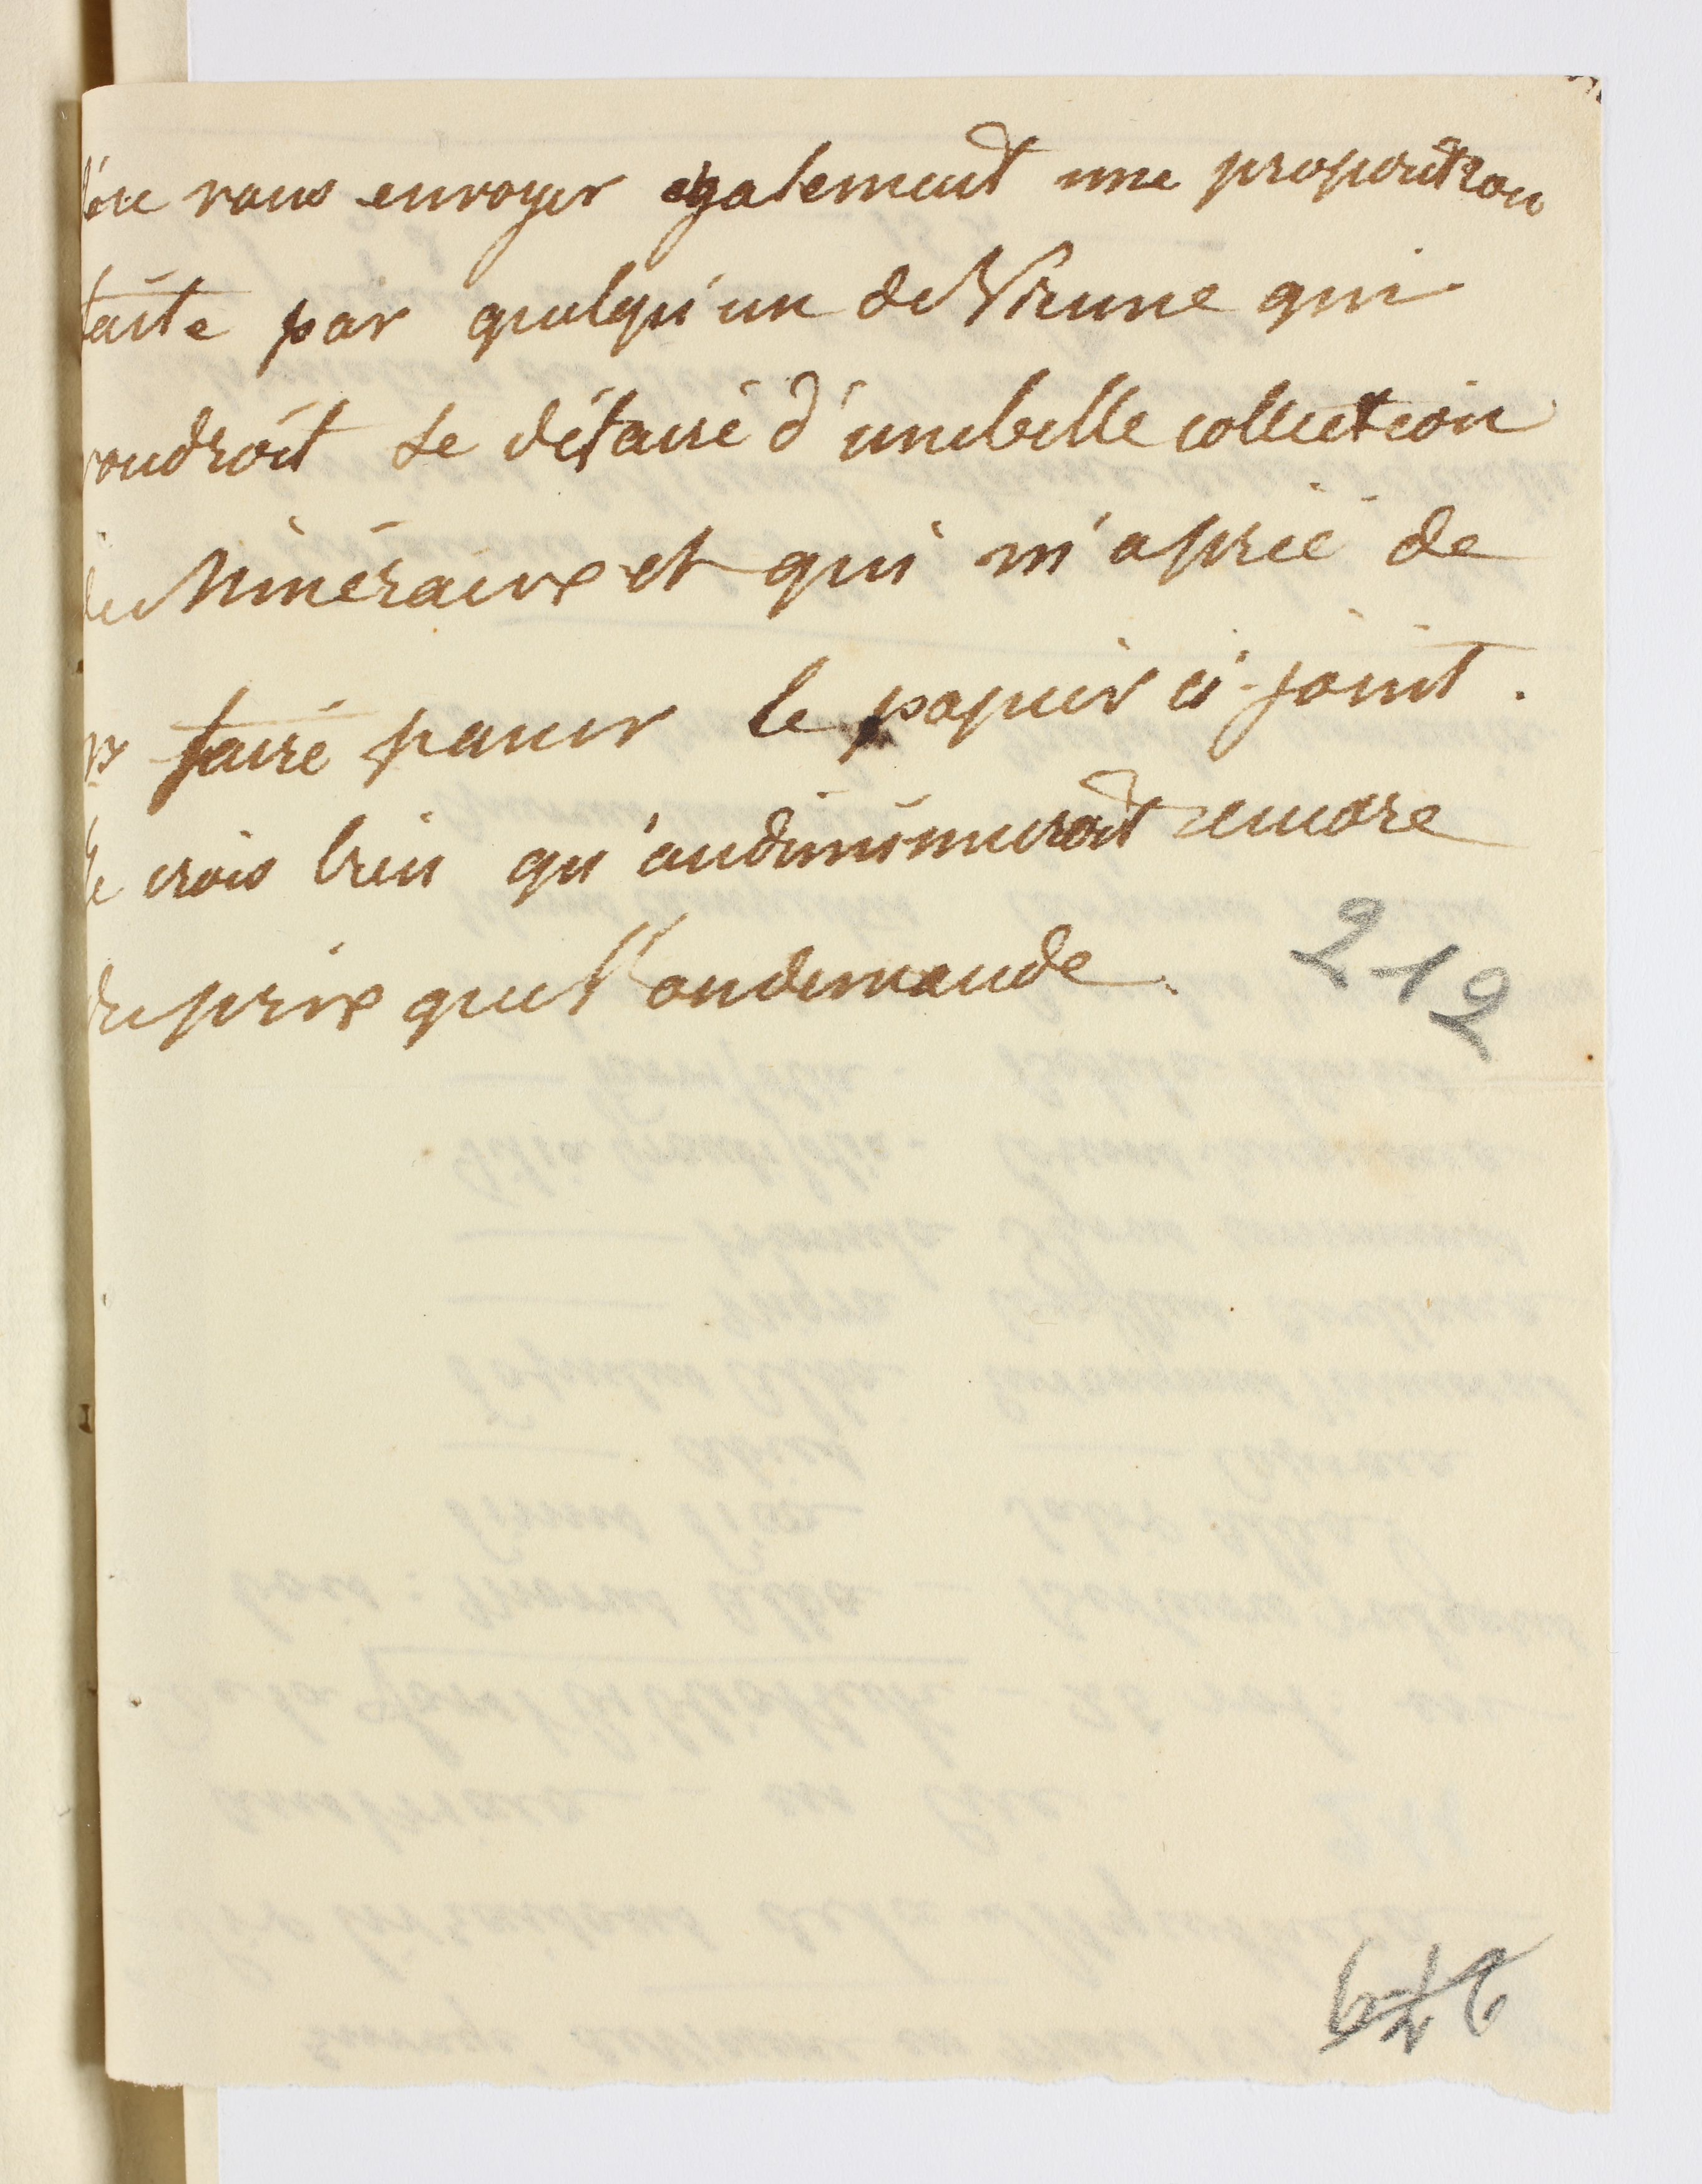 vous envoyer également une proposition
faite par quelqu'un de Vienne qui
voudroit se défairé d'une belle collection
de Minéraux et qui m'a prié de
vs fairé passer le papier ci-joint.
Je crois bien qu'on diminueroit encore
du prix que l'on demande.
212